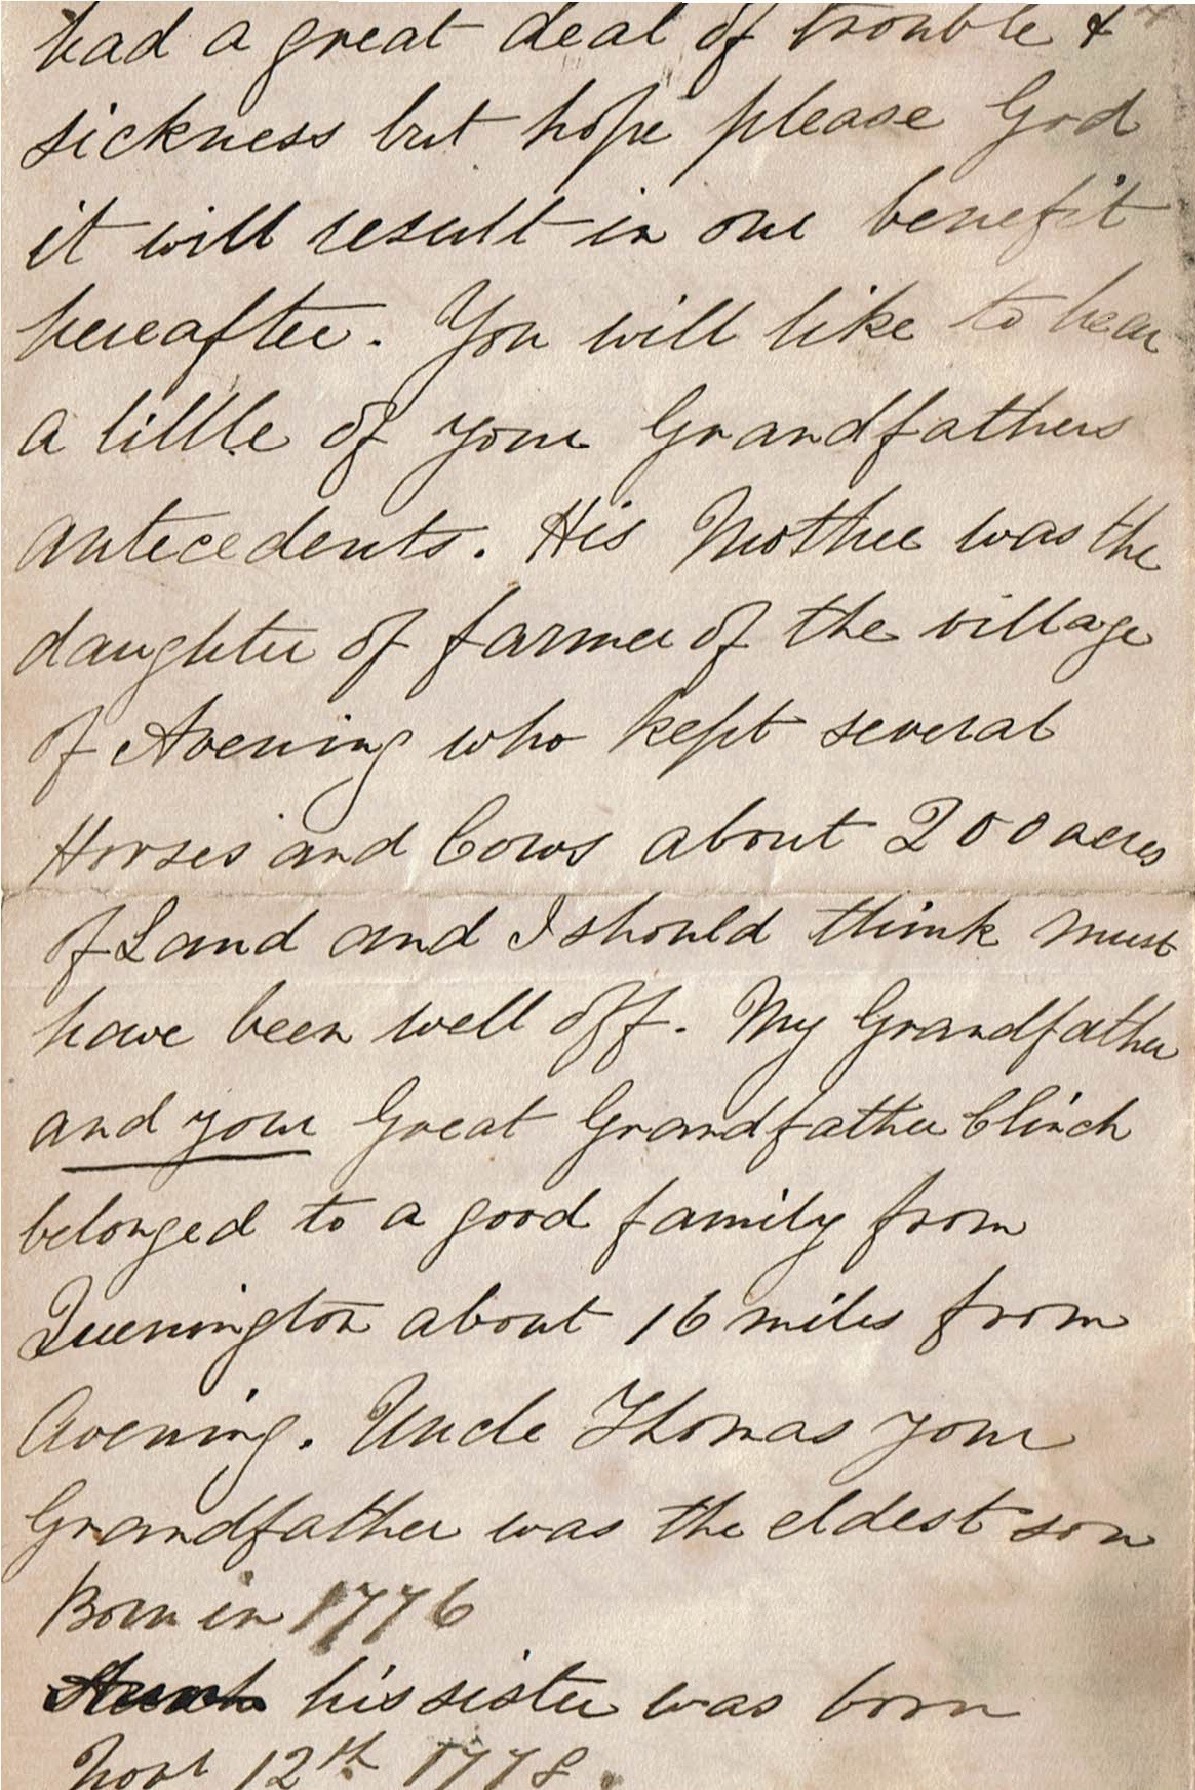 had a great deal of trouble &
sickness but hope please God
it will result in our benefit
hereafter. You will like to hear
a little of your Grandfathers
antecedents. His Mother was the
daughter of farmer of the village
of Avening who kept several
Horses and Cows about 200 acres
of Land and I should think must
have been well off. My Grandfather
and your Great Grandfather Clinch
belonged to a good family from
Quenington about 16 miles from
Avening. Uncle Thomas your
Grandfather was the eldest son
Born in 1776
his sister was born
Novr 12th 1778.